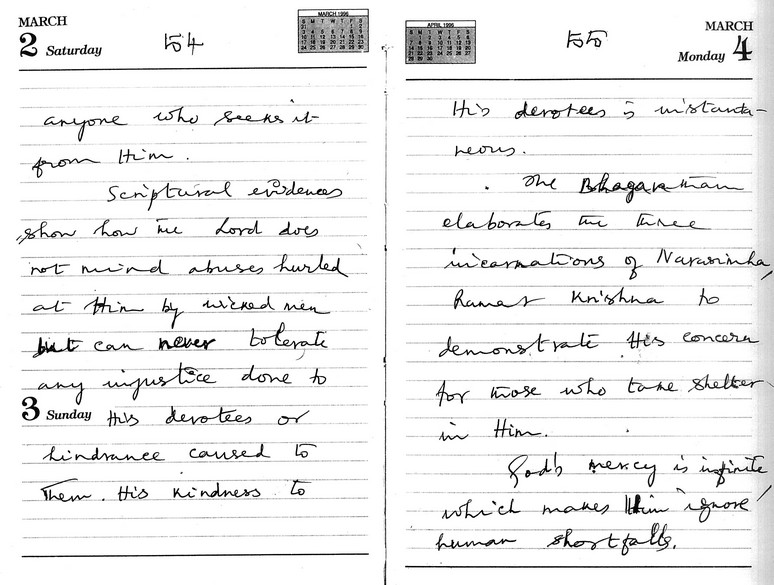 MARCH
2 Saturday
54
MARCH 1996
S M T W T F S
anyone who seeks it
from Him.
Scriptural evidences
show how the Lord does
not mind abuses hurled
at Him by wicked men
but can never tolerate
any injustice done to
3 Sunday
His devotees or
hindrance caused to
them. His kindness to
APRIL 1996
S M T W T F S
55
MARCH
Monday 4
His devotees is instanta-
neous.
The Bhagavatham
elaborates the three
incarnations of Narasimha,
Rama & Krishna to
demonstrate His concern
for those who take shelter
in Him.
God's mercy is infinite,
which makes Him ignore
human shortfalls.